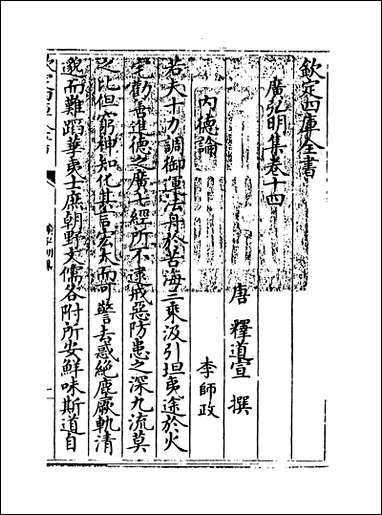 欽定四庫全書
廣弘明集卷十四
唐 釋道宣 撰
內德論 李師政
若夫十力調御運法舟於苦海三乘汲引坦夷途於火
宅勸善進徳之廣七經所不逮戒惡防患之深九流莫
之比但窮神知化其言宏大而可警去惑絶塵厥軌清
邈而難蹈華夷士庶朝野文儒各附所安鮮味斯道自
欽定四庫全書
廣弘明集
一